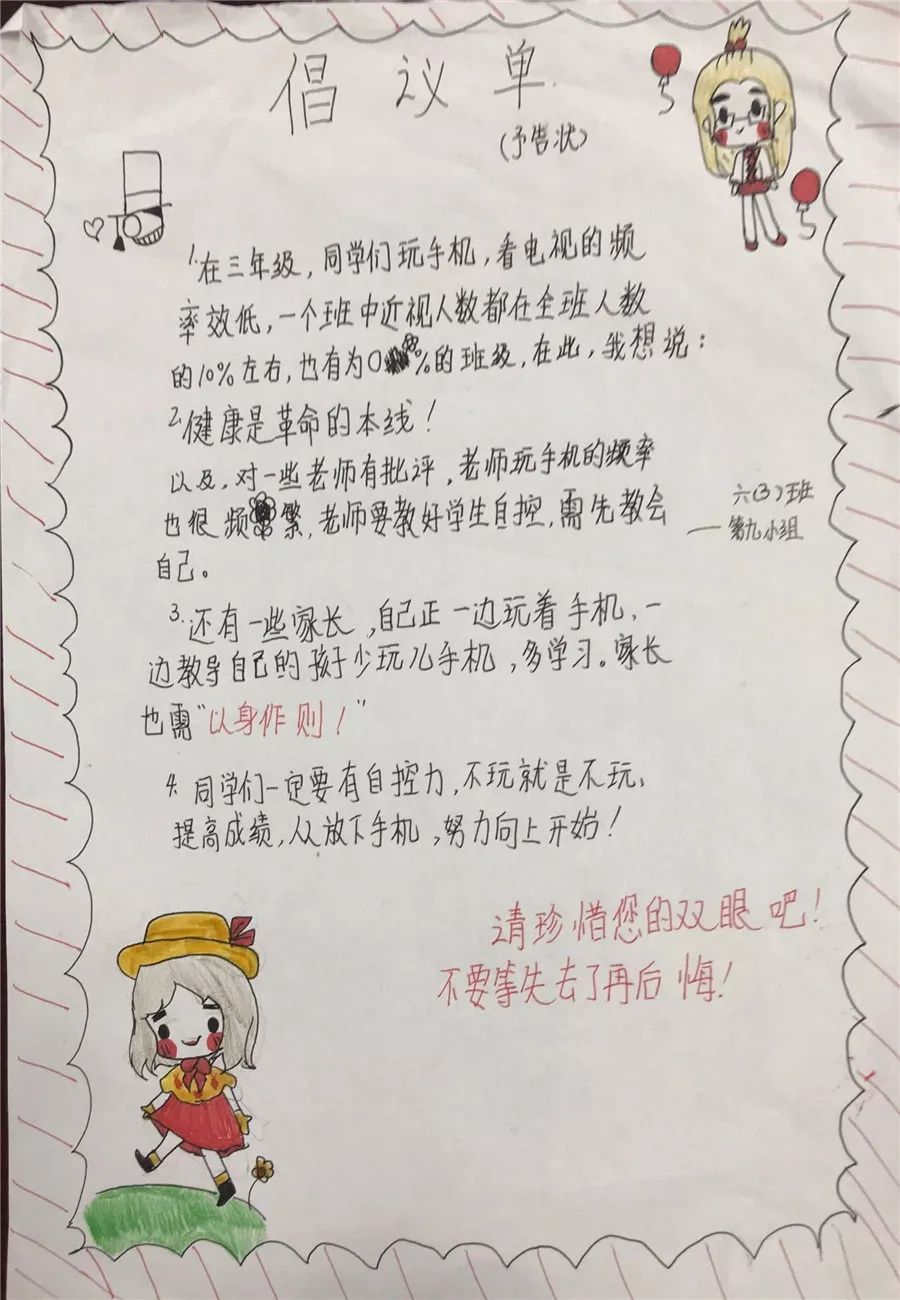 倡议单
(予告状)
1.在三年级，同学们玩手机，看电视的频
率效低，一个班中近视人数都在全班人数
的10%左右，也有为0%的班级，在此，我想说：
2.健康是革命的本线！
以及，对一些老师有批评，老师玩手机的频率
也很频繁，老师要教好学生自控，需先教会
自己。
六(3)班
——第九小组
3.还有一些家长，自己正一边玩着手机，一
边教导自己的孩子少玩儿手机，多学习。家长
也需“以身作则！”
4.同学们一定要有自控力，不玩就是不玩、
提高成绩，从放下手机，努力向上开始！
请珍惜您的双眼吧！
不要等失去了再后悔！